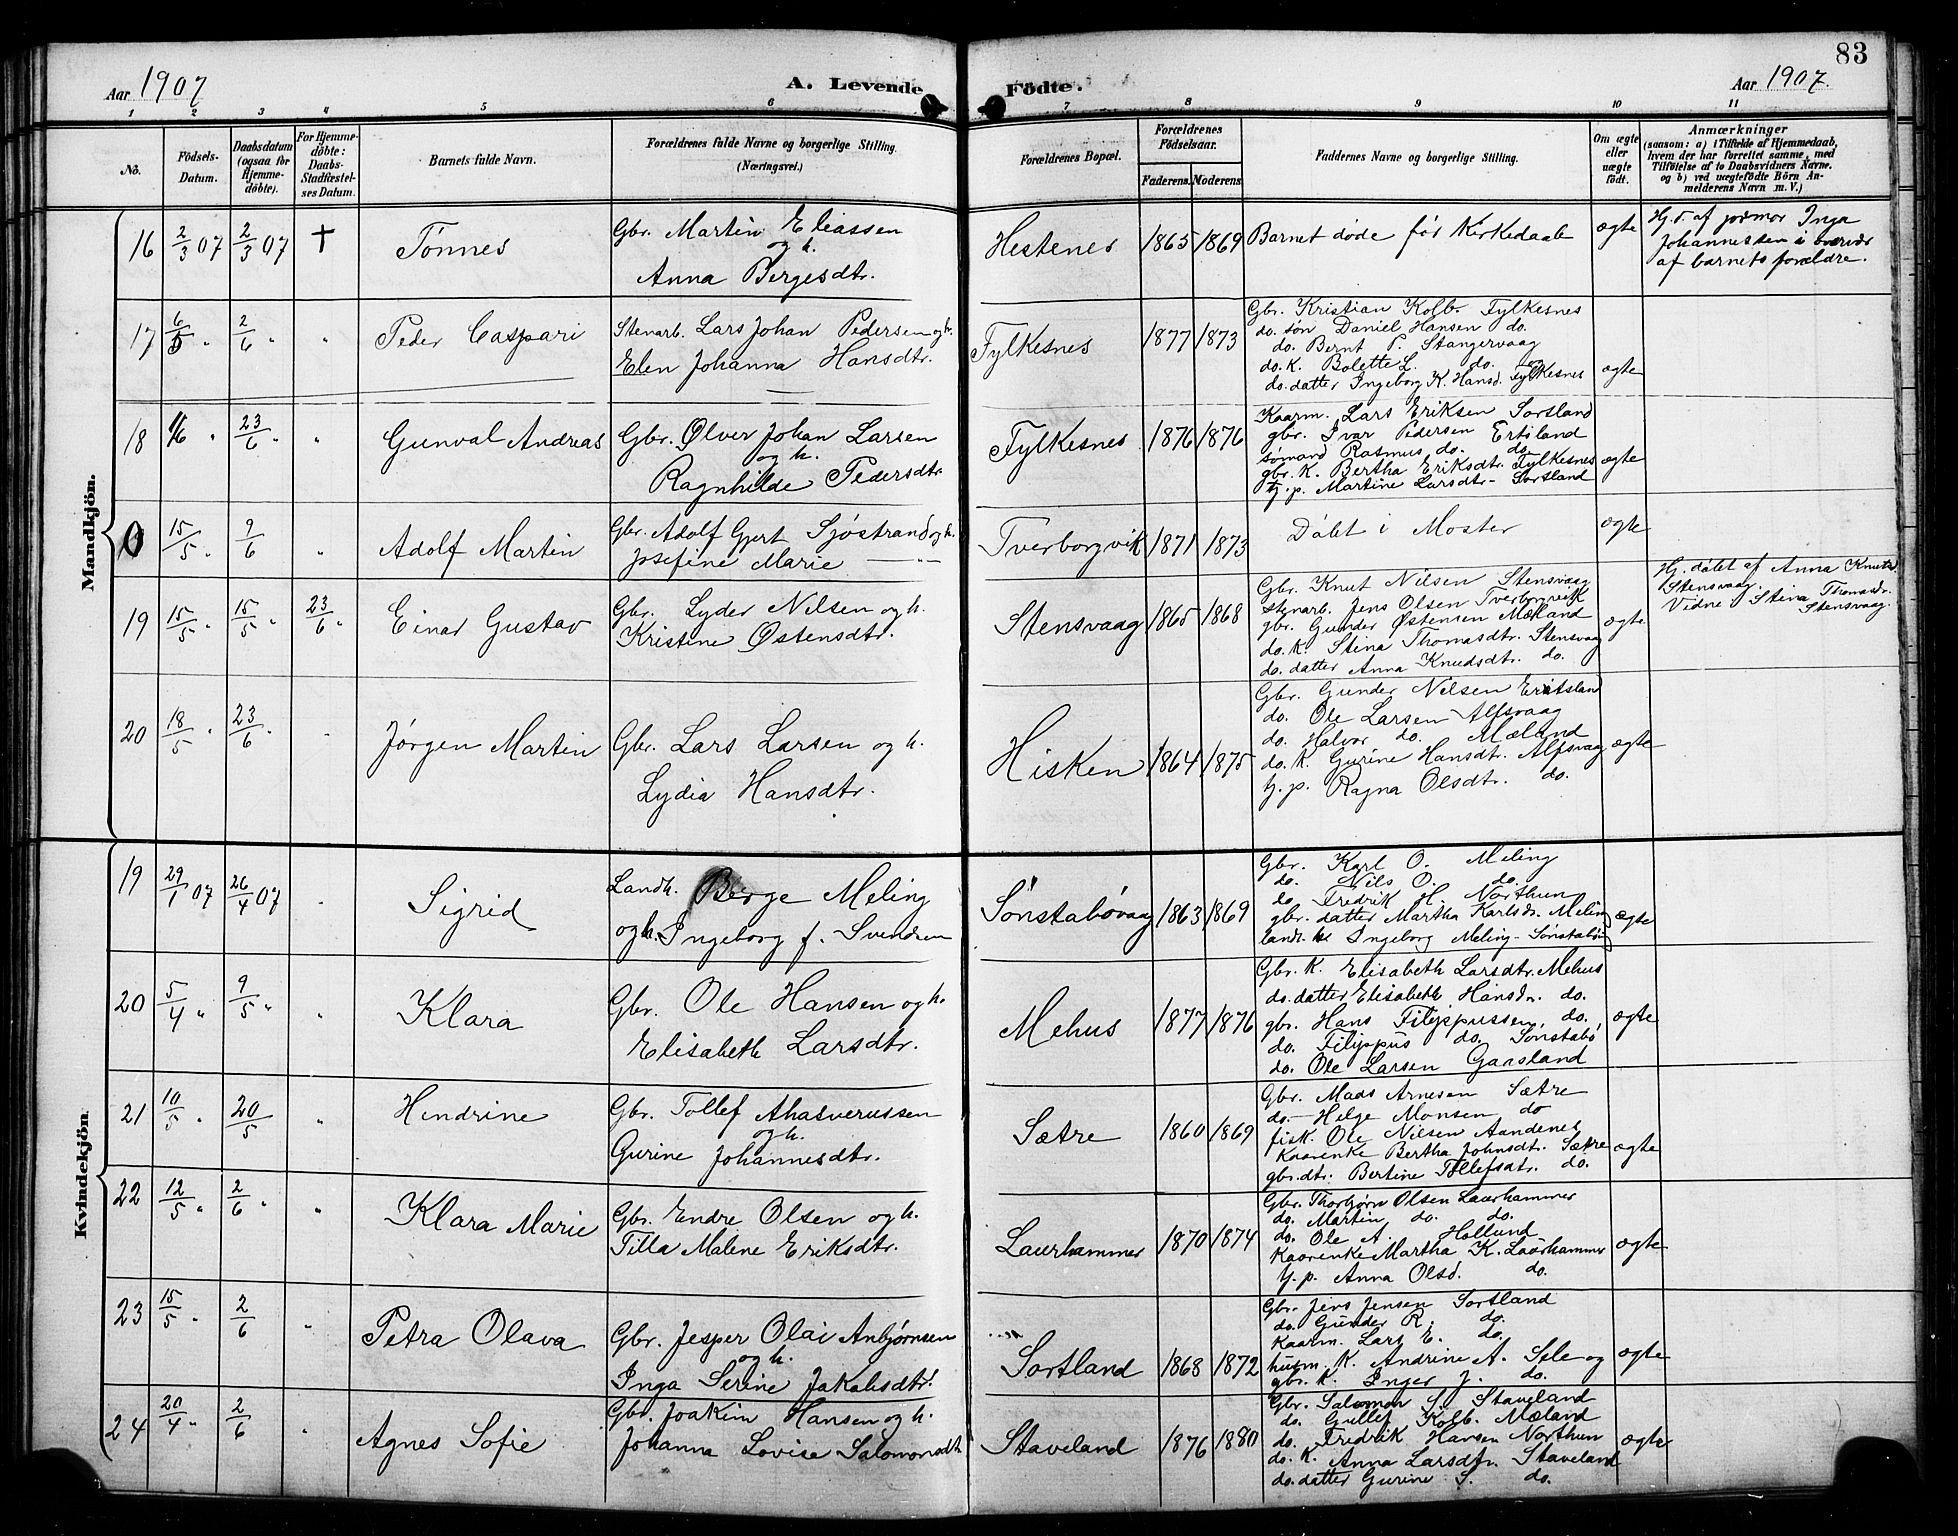 83
Aar 1907
A. Levende
Födte.
Aar 1907.
1 2 3 4 5 6 7 8 9 10 11
No.
Födsels-Datum.
Daabsdatum (ogsaa for Hjemme-döbte).
For Hjemme-döbte: Daabs-Stadfæstel-ses Datum.
Barnets fulde Navn.
Forældrenes fulde Navne og borgerlige Stilling.
(Næringsvei.)
Forældrenes Bopæl.
Forældrenes Födselsaar.
Faderens. Moderens.
Faddernes Navne og borgerlige Stilling.
Om ægte eller uægte födt.
Anmærkninger
(saasom: a) i Tilfælde af Hjemmedaab,
hvem der har forrettet samme, med
Tilföielse af to Daabsvidners Navne.
og b) ved uægtefödte Börn An-
melderens Navn m. V.)
Mandkjön.
16 2/3 07 2/3 07 † Tønnes
Gbr. Martin Eliassen
og h.
Anna Bergesdtr.
Hestenes 1865 1869 Barnet døde før Kirkedaab ægte
Hj. d. af jordmor Inga
Johannessen i overvær
af barnets forældre.
17 2/6 " " Peder Caspari
Stenarb. Lars Johan Pedersen og h.
Elen Johanna Hansdtr.
Fylkesnes 1877 1873
Gbr. Kristian Kolb. Fylkesnes
do. søn Daniel Hansen do.
do. Bernt P. Stangervaag
do. K. Bolette L. do.
do. datter Ingeborg K. Hansd. Fylkesnes
ægte
18 " 23/6 " " Gunval Andreas
Gbr. Ølver Johan Larsen
og h.
Ragnhilde Pedersdtr.
Fylkesnes 1876 1876
Kaarm. Lars Eriksen Sortland
gbr. Ivar Pedersen Ertsland
sømand Rasmus do. do.
gbr. K. Bertha Eriksdtr. Fylkesnes
tj. p. Martine Larsdtr. Sortland
ægte
0 15/5 " 9/6 " Adolf Martin
Gbr. Adolf Gjert Sjöstrand og h.
Josefine Marie —"—
Tverborgvik 1871 1873 Döbt i Moster ægte
19 15/5 " 15/5 " 23/6 " Einar Gustav
Gbr. Lyder Nilsen og h.
Kristine Østensdtr.
Stensvaag 1865 1868
Gbr. Knut Nilsen Stensvaag
Stenarb. Jens Olsen Tverborgvik
gbr. Gunder Østensen Mæland
do. K. Stina Thomasdtr. Stensvaag
do. datter Anna Knudsdtr. do.
ægte
Hj. døbt af Anna Knuts.
Stensvaag.
Vidne Stina Thomasdr.
Stensvaag.
20 18/5 " 23/6 " Jørgen Martin
Gbr. Lars Larsen og h.
Lydia Hansdtr.
Hisken 1864 1875
Gbr. Gunder Nilsen
do. Ole Larsen Alfsvaag
do. Halvor do. Mæland
do. K. Gurine Hansdtr. Alfsvaag
tj. p. Ragna Olsdtr. do.
ægte
Kvindekjön.
19 29/1 07 26/4 07 " Sigrid
Landh. Berge Meling
og h. Ingeborg f. Svendsen
Sønstabøvaag 1863 1869
Gbr. Karl O. Meling
do. Nils O. do.
do Fredrik H. Northun
gbr. datter Martha Karlsdr. Meling
landh. Ingeborg Meling Sønstabø
ægte
20 5/4 " 9/5 " " Klara
Gbr. Ole Hansen og h.
Elisabeth Larsdtr.
Mehus 1877 1876
Gbr. K. Elisabeth Larsdtr. Mehus
do. datter Elisabeth Hansdr. do.
gbr. Hans Filippussen do.
do. Filippus do. Sønstabø
do. Ole Larsen Gaasland
ægte
21 10/5 " 20/5 " Hendrine
Gbr. Tollef Ahasverussen
og h.
Gurine Johannesdtr.
Sætre 1860 1869
Gbr. Mads Arnesen Sætre
do.— Helge Monsen do
fisk. Ole Nilsen Aandenes
Kaarenke Bertha Johnsdt. Sætre
gbr. dtr. Bertine Tollefsdtr. do.
ægte
22 12/5 " 2/6 " " Klara Marie
Gbr. Endre Olsen og h.
Tilla Malene Eriksdtr.
Laurhammer 1870 1874
Gbr. Thorbjørn Olsen Laurhammer
do. Martin do. do.
do. Ole A. Hollund
Kaarenke Martha K. Laurhammer
tj. p. Anna Olsd. do.
ægte
23 15/5 " 2/6 " Petra Olava
Gbr. Jesper Olai Anbjørnsen
og h.
Inga Serine Jakobsdtr.
Sortland 1868 1872
Gbr. Jens Jensen Sortland
do. Gunder R. do.
Kaarm. Lars E. do.
husm. K. Andrine A. Sele og
gbr. K. Inger J. do.
ægte
24 20/4 " 2/6 " Agnes Sofie
Gbr. Joakim Hansen og h.
Johanna Lovise Salomonsdtr.
Staveland 1876 1880
Gbr. Salomon S. Staveland
do. Gullef Kolb. Mæland
do. Fredrik Hansen Northun
do. K. Anna Larsdtr. Staveland
do. datter Gurine S. do.
ægte